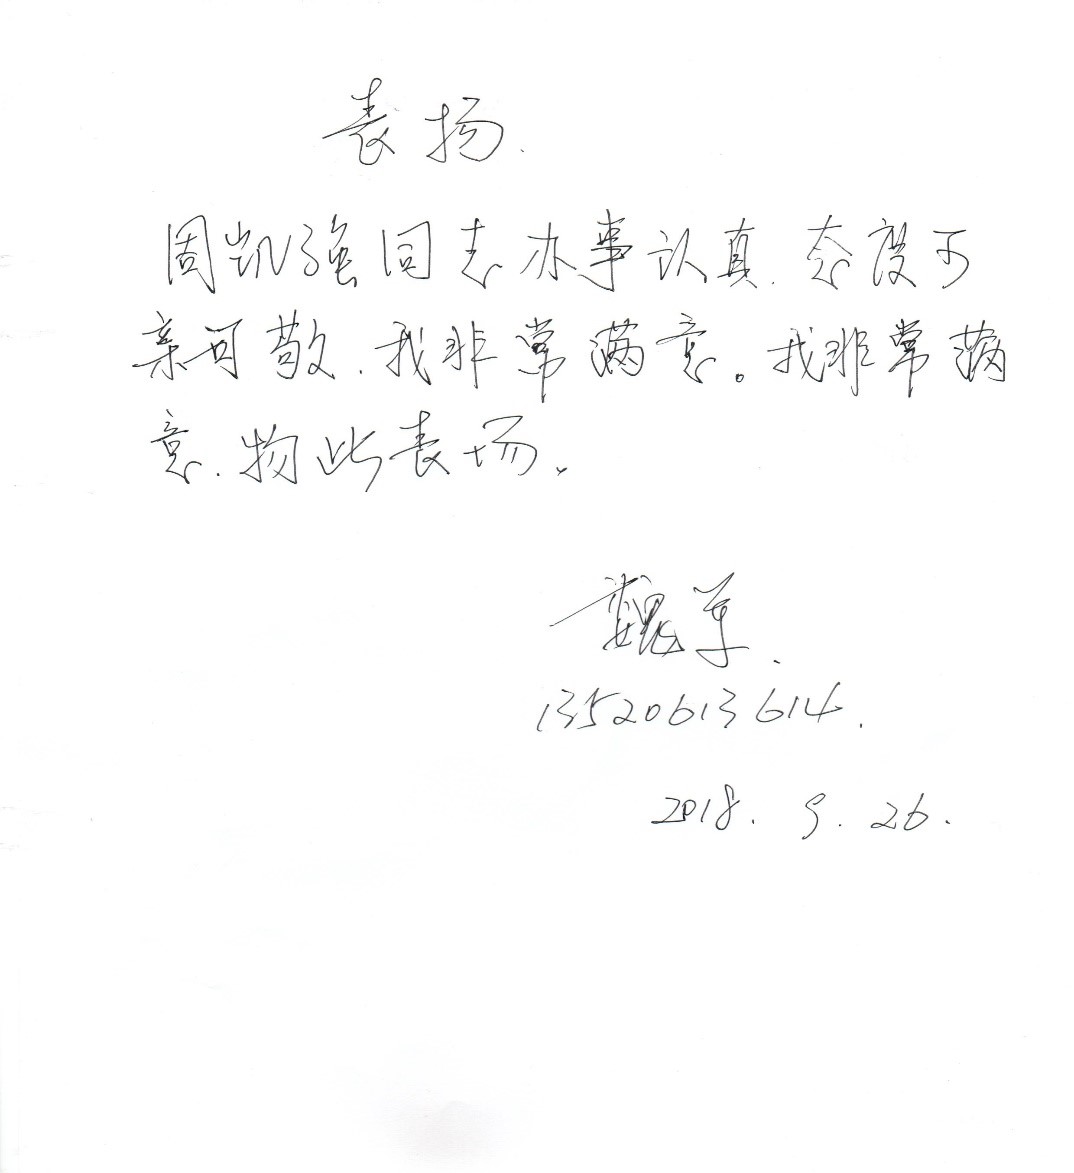 表扬.
周凯强同志办事认真.态度可
亲可敬.我非常满意。我非常满
意.物此表扬。
魏军.
13520613614.
2018. 9. 26.